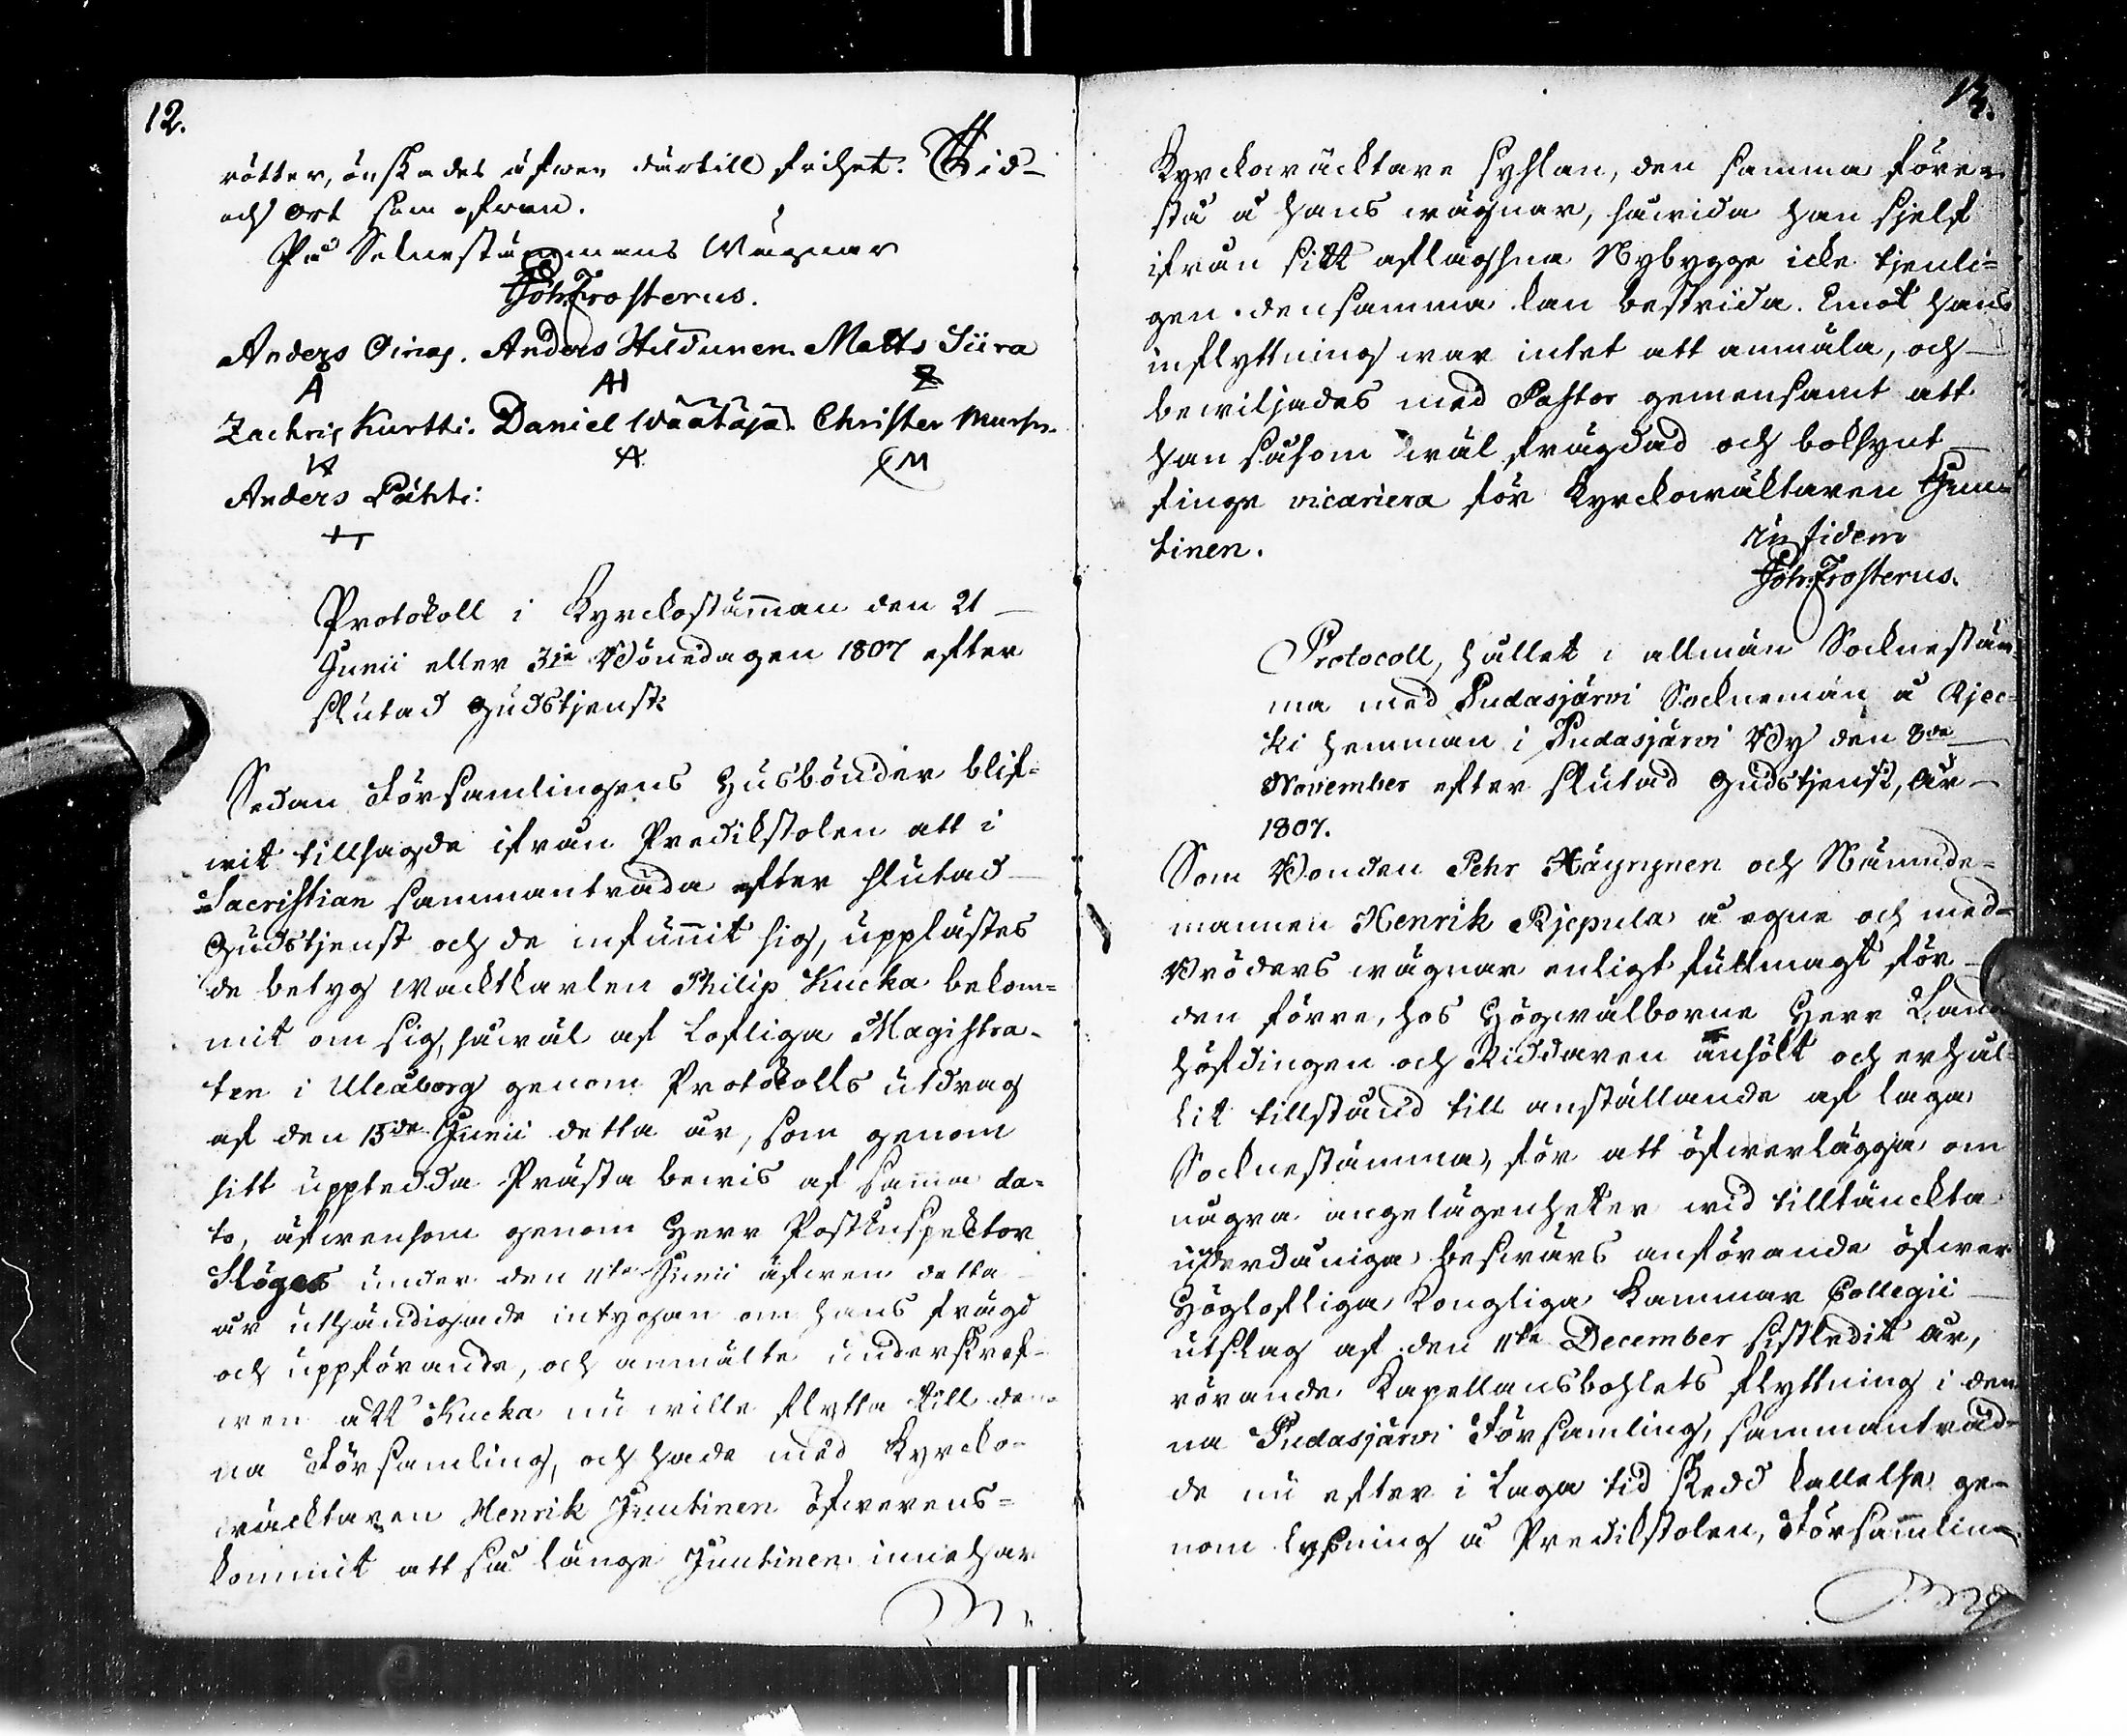 12.
rötter, önskades äfwen därtill frihet. Tid
och ort som ofwan.
På Soknestämmans Wägnar
Joh: Frosterus.
Anders Oinas. Anders Hildunen. Matts Siira
Zachris Kurtti. Daniel Wäätäjä. Christer
Anders Lähti.
Protokoll i Kyrckostämman den 21
Junii eller 3:ie Bönedagen 1807 efter
slutad Gudstjenst.
Sedan Församlingens Husbönder blif-
wit tillsagde ifrån Predikstolen att i
Sacristian sammanträda efter slutad
Gudstjenst och de infunnit sig, upplästes
de betyg Wacktkarlen Philip Kucka bekom-
mit om sig, såwäl af Lofliga Magistra-
ten i Uleåborg genom Protokolls utdrag
af den 15de Junii detta år, som genom
sitt uppledda Prästa bewis af samma da-
to, äfwensom genom Herr Postinspektor
under den 11te Junii äfwen detta
år uthändigade intygan om hans frägd
och uppförande, och anmälte underskref-
wen att Kucka nu wille flytta till den-
na Församling, och hade med Kyrcko-
wäcktaren Henrik Juutinen öfwerens-
kommit att så länge Juutinen innehar
13.
Kyrckowäcktare syslan, den sammaföre-
stå å hans wägnar, såwida han sjelf
ifrån sitt aflägsna Nybygge icke tjenli-
gen densamma kan bestrida. Emot hans
inflyttning war intet att anmäla, och
bewiljades med Pastor gemensamt att
han såsom wäl frägdad och boksynt
finge vicariera för Kyrckowäktaren Juu-
tinen.
In fidem
Joh: Frosterus.
Protocoll, hållet i allmän Socknestäm-
ma med Pudasjärvi Socknemän å Rjec-
ki hemman i Pudasjärvi By den 8de
November efter slutad Gudstjenst, År
1807.
Som Bonden Pehr Häyrynen och Nämnde-
mannen Henrik Rjepula å egne och med-
Bröders wägnar enligt fullmagt för
den förre, hos Högwälborne Herr Lands
höfdingen och Riddaren anhölt och erhål-
lit tillstånd till anställande af laga
Socknestämma, för att öfwerlägga om
några angelägenheter wid tilltänckta
underdåniga beswärs anförande öfwer
Höglofliga Kongliga Kammar Collegii
utslag af den 11te December sistledit år,
rörande Kapellansbohlets flyttning i den
na Pudasjärvi Församling, sammanträd-
de nu efter i laga tid skedd kallelse ge-
nom lysning å Predikstolen, Församlin-